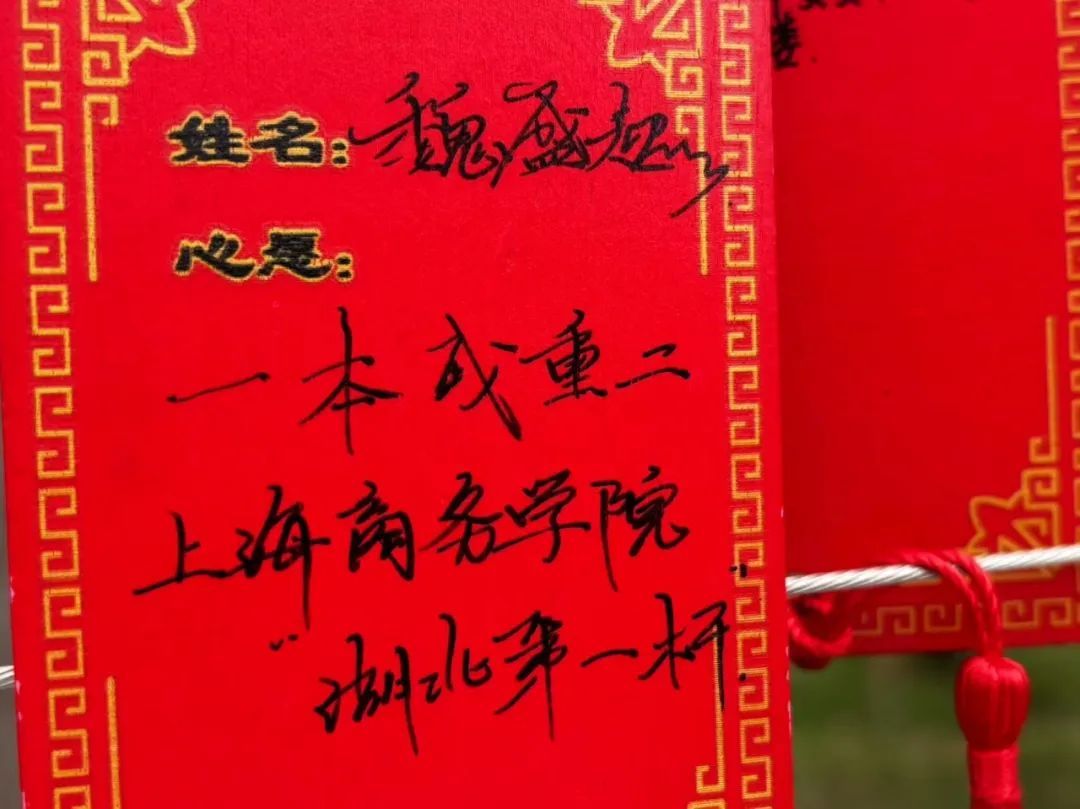 姓名: 魏盛超
心愿:
一本或重二
上海商务学院
"湖北第一杆"
楼